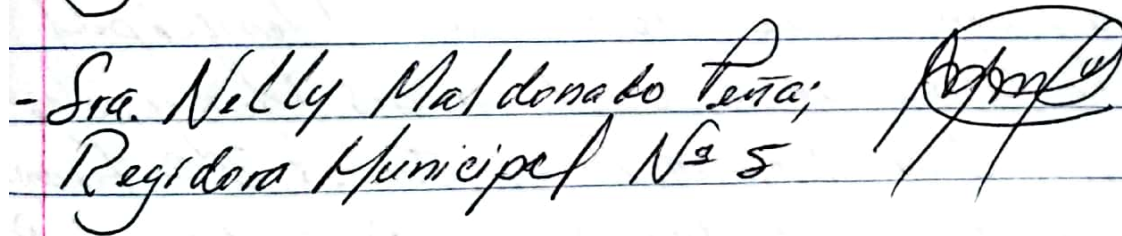 - Sra. Nelly Maldonado Peña;
Regidora Municipal Nº 5